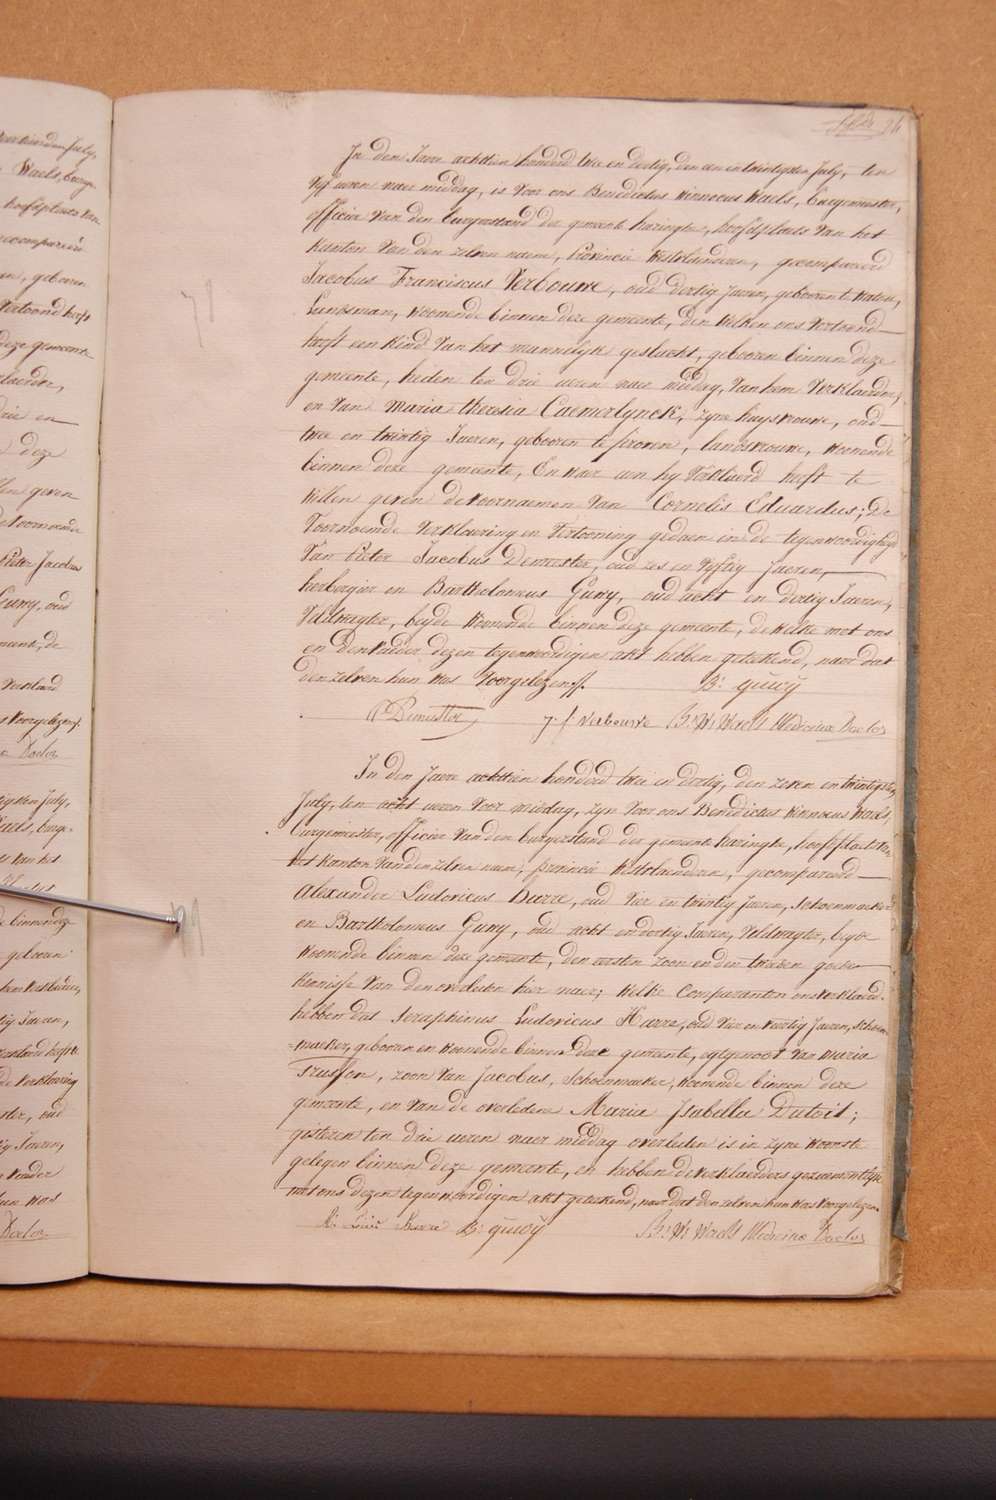 74
In den Jaere achttien honderd twee en dertig, den een en twintigsten July, ten
vyf uren naer middag, is voor ons Benedictus Winnocus Waels, Burgemeester,
officier van den burgerstand der gemeente Haringhe, hoofdplaets van het
kanton van den zelven naem, Provincie Westvlaenderen, gecompareerd
Jacobus Franciscus Verbouwe, oud dertig Jaeren, gebooren te Watou,
Landsman, woonende binnen deze gemeente, den welken ons vertoond
heeft een kind van het mannelyk geslacht, gebooren binnen deze
gemeente, heden ten drie uren naer middag, van hem verklaerder,
en van Maria theresia Caemerlynck, zyne huysvrouwe, oud
twee en twintig Jaeren, gebooren te proven, landsvrouwe, woonende
binnen deze gemeente, En waer aen hy verklaerd heeft te
willen geven de voornaemen van Cornelis Eduardus; De
voornoemde verklaering en vertooning gedaen in de tegenwoordigheyd
van Pieter Jacobus Demeester, oud zes en vyftig Jaeren,
herbergier en Bartholomeus Guwy, oud acht en dertig Jaeren,
veldwagter, beyde woonende binnen deze gemeente, de welke met ons
en den vader dezen tegenwoordigen akt hebben geteekend, naer dat
den zelven hun was voorgelezen.
B: guwy
P Demeester J. f. Verbouwe B: W: Waels Medicinæ Doctor
In den Jaere achttien honderd twee en dertig, den zeven en twintigsten
July, ten acht uren voor middag, zyn voor ons Benedictus Winnocus Waels,
burgemeester, officier van den burgerstand der gemeente Haringhe, hoofdplaets van
het kanton van den zelven naem, provincie Westvlaenderen, gecompareerd
Alexander Ludovicus Harre, oud vier en twintig Jaeren, Schoenmaeker
en Bartholomeus Guwy, oud acht en dertig Jaeren, veldwagter, beyde
woonende binnen deze gemeente, den eersten zoon en den tweeden goede
kennisse van den overleden hier naer; welke Comparanten ons verklaerd
hebben dat Seraphinus Ludovicus Harre, oud vier en veertig Jaeren, schoen
=maeker, gebooren en woonende binnen deze gemeente, egtgenoot van Maria
Trusson, zoon van Jacobus, Schoenmaeker, woonende binnen deze
gemeente, en van de overledene Maria Isabella Dutoit;
gisteren ten drie uren naer middag overleden is in zyne woonste
gelegen binnen deze gemeente, en hebben de verklaerders gezamentlyk
met ons dezen tegenwoordigen akt geteekend, naer dat den zelven hun was voorgelezen.
B: guwy B: W: Waels Medicinæ Doctor